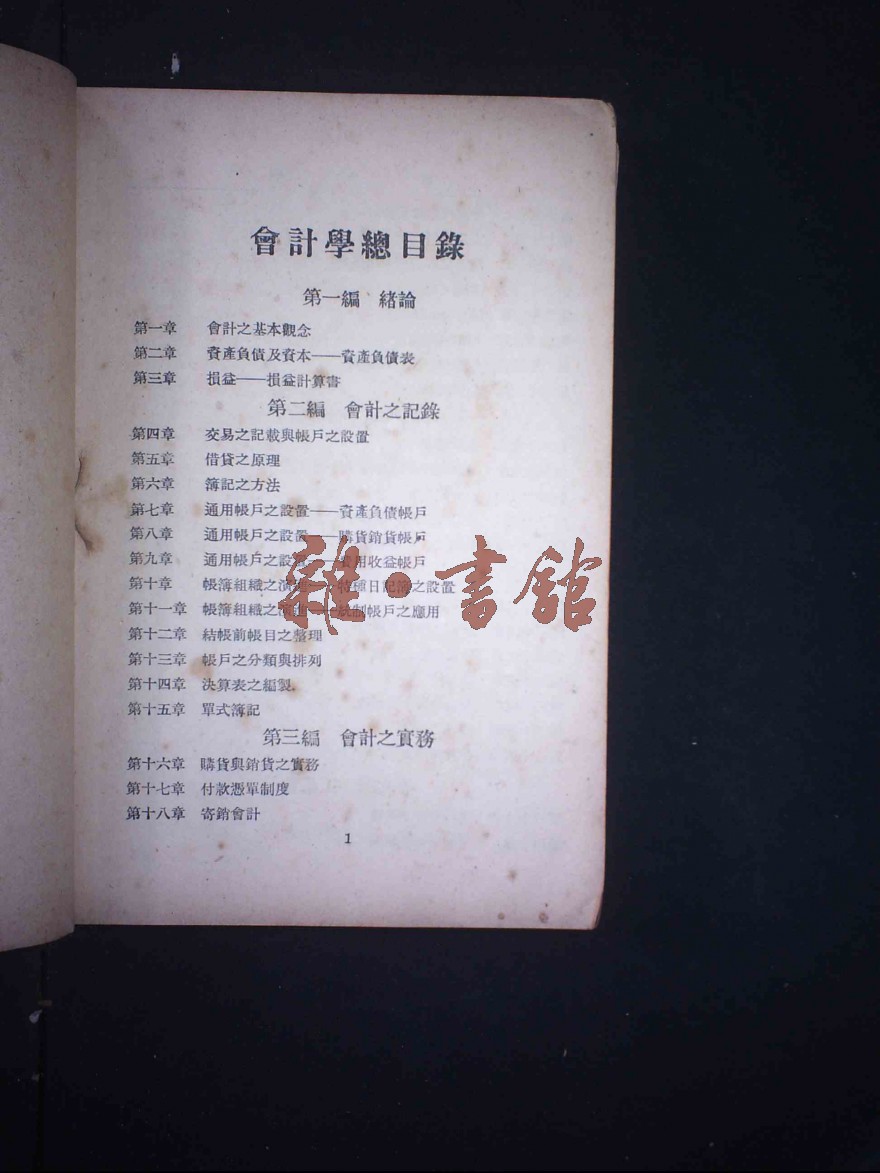 會計學總目錄
第一編 緒論
第一章 會計之基本觀念
第二章 資產負債及資本——資產負債表
第三章 損益——損益計算書
第二編 會計之記錄
第四章 交易之記載與帳戶之設置
第五章 借貸之原理
第六章 簿記之方法
第七章 通用帳戶之設置——資產負債帳戶
第八章 通用帳戶之設置——購貨銷貨帳戶
第九章 通用帳戶之設置 用收益帳戶
第十章 帳簿組織之演進 特種日記簿之設置
第十一章 帳簿組織之演進 統制帳戶之應用
第十二章 結帳前帳目之整理
第十三章 帳戶之分類與排列
第十四章 決算表之編製
第十五章 單式簿記
第三編 會計之實務
第十六章 購貨與銷貨之實務
第十七章 付款憑單制度
第十八章 寄銷會計
1
雜·書館